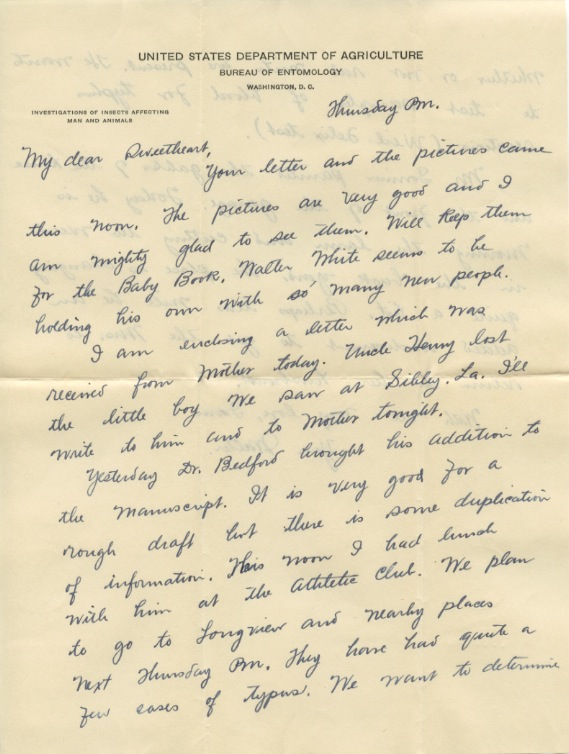 UNITED STATES DEPARTMENT OF AGRICULTURE
BUREAU OF ENTOMOLOGY
WASHINGTON, D. C.
INVESTIGATIONS OF INSECTS AFFECTING
MAN AND ANIMALS
Thursday Pm.
My dear Sweetheart,
Your letter and the pictures came
this noon. The pictures are very good and I
am mighty glad to see them. Will keep them
for the Baby Book. Walter White seems to be
holding his own with so many new people.
I am enclosing a letter which was
received from Mother today. Uncle Henry lost
the little boy we saw at Sibley. La. I'll
write to him and to Mother tonight.
Yesterday Dr. Bedford brought his addition to
the manuscript. It is very good for a
rough draft but there is some duplication
of information. This noon I had lunch
with him at the Athletic Club. We plan
to go to Longview and nearby places
next Thursday Pm. They have had quite a
few cases of typus. We want to determine